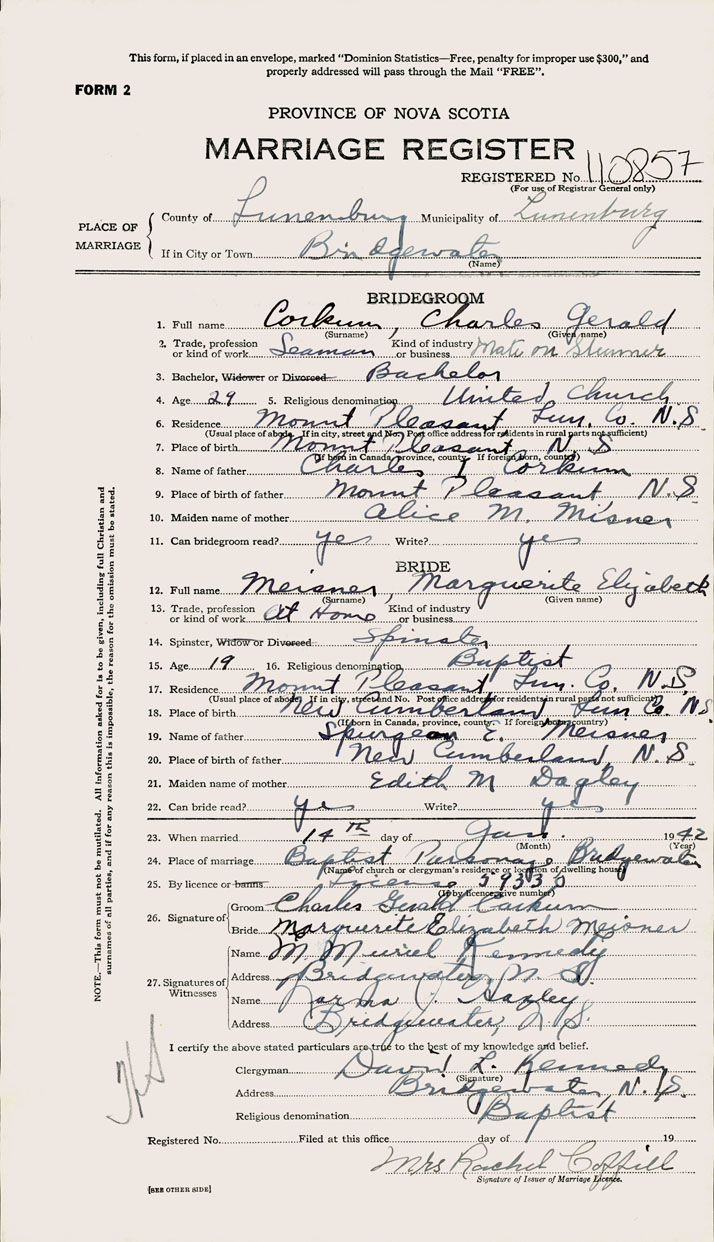 This form, if placed in an envelope, marked "Dominion Statistics—Free, penalty for improper use $300," and
properly addressed will pass through the Mail "FREE".
FORM 2
PROVINCE OF NOVA SCOTIA
MARRIAGE REGISTER
REGISTERED No. 110857
(For use of Registrar General only)
PLACE OF MARRIAGE
County of Lunenburg Municipality of Lunenburg
If in City or Town Bridgewater
(Name)
BRIDEGROOM
1. Full name Corkum, Charles Gerald
(Surname) (Given name)
2. Trade, profession or kind of work Seaman Kind of industry or business Mate on
3. Bachelor, Widower or Divorced Bachelor
4. Age 29 5. Religious denomination United Church
6. Residence Mount Pleasant Lun. Co. N.S.
(Usual place of abode. If in city, street and No. Post office address for residents in rural parts not sufficient)
7. Place of birth Mount Pleasant N.S
(If born in Canada, province, county. If foreign born, country)
8. Name of father Charles Corkum
9. Place of birth of father Mount Pleasant N.S
10. Maiden name of mother Alice M. Misner
11. Can bridegroom read? yes Write? yes
BRIDE
12. Full name Meisner, Marguerite Elizabeth
(Surname) (Given name)
13. Trade, profession or kind of work At Home Kind of industry or business
14. Spinster, Widow or Divorced Spinster
15. Age 19 16. Religious denomination Baptist
17. Residence Mount Pleasant Lun. Co. N.S.
(Usual place of abode. If in city, street and No. Post office address for residents in rural parts not sufficient)
18. Place of birth New Cumberland Lun Co. N.S.
(If born in Canada, province, county. If foreign born, country)
19. Name of father Spurgeon E. Meisner
20. Place of birth of father New Cumberland, N.S.
21. Maiden name of mother Edith M Dagley
22. Can bride read? yes Write? yes
23. When married 14TH day of Jan. 1942
(Month) (Year)
24. Place of marriage Baptist Parsonage Bridgewater
(Name of church or clergyman's residence or location of dwelling house)
25. By licence or banns License
(If by licence give number)
26. Signature of
Groom Charles Gerald Corkum
Bride Marguerite Elizabeth Meisner
27. Signatures of Witnesses
Name M Muriel Kennedy
Address Bridgewater, N.S.
Name
Address Bridgewater, N.S.
I certify the above stated particulars are true to the best of my knowledge and belief.
Clergyman David L. Kennedy
(Signature)
Address Bridgewater, N.S.
Religious denomination Baptist
Registered No. Filed at this office day of 19
Mrs Rachel Coffill
Signature of Issuer of Marriage Licence.
[SEE OTHER SIDE]
NOTE.—This form must not be mutilated. All information asked for is to be given, including full Christian and
surnames of all parties, and if for any reason this is impossible, the reason for the omission must be stated.